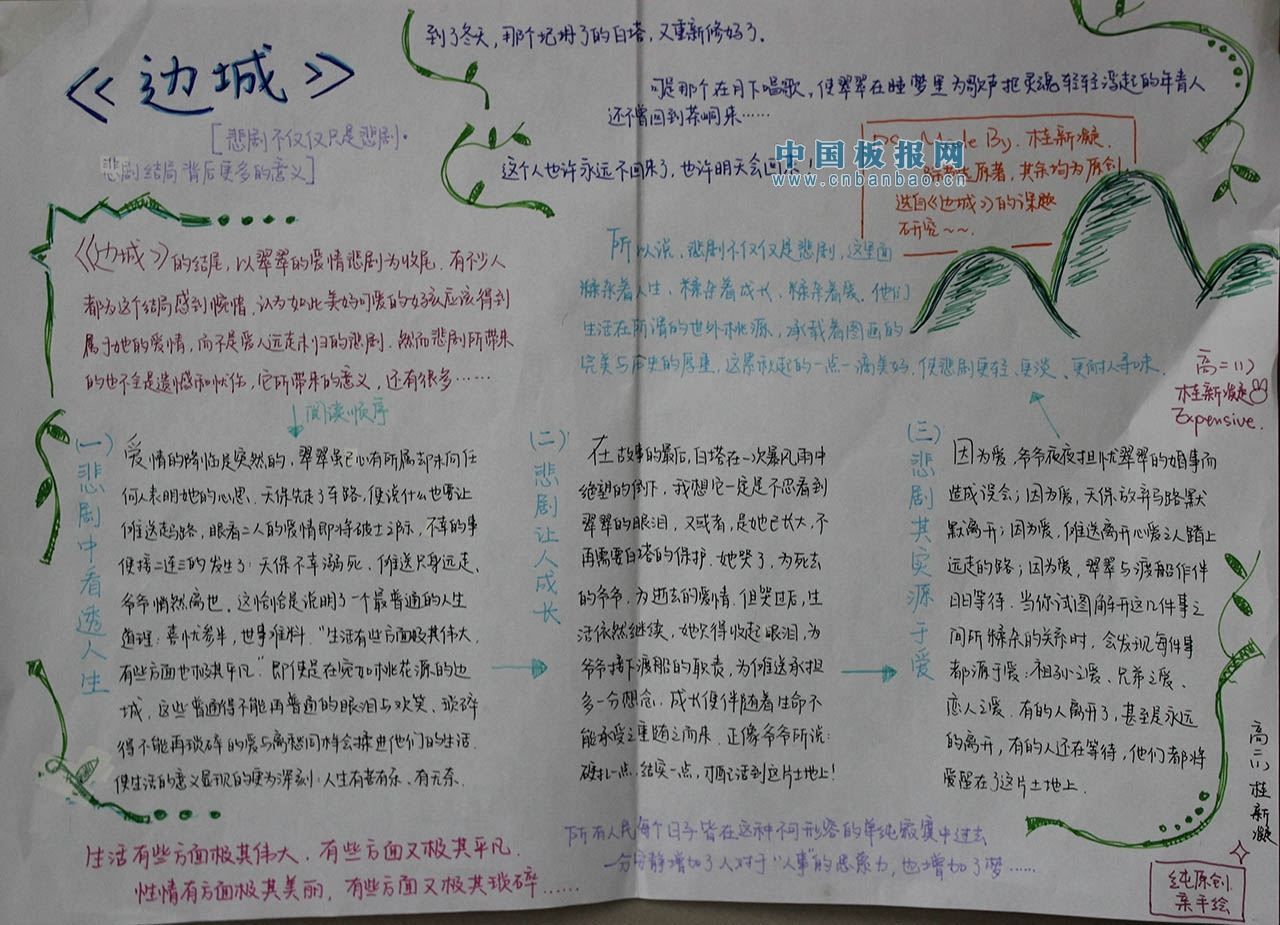 《边城》
[悲剧不仅仅只是悲剧.
悲剧结局背后更多的意义]
到了冬天，那个圮坍了的白塔，又重新修好了.
可是那个在月下唱歌，使翠翠在睡梦里为歌声把灵魂轻轻浮起的年青人
还不曾回到茶峒来……
这个人也许永远不回来了，也许明天会回来
中国板报网
www.cnbanbao.cn
Made By. 桂新凝.
原著，其余均为原创
选自《边城》的课题
研究~~.
《边城》的结尾，以翠翠的爱情悲剧为收尾. 有不少人
都为这个结局感到惋惜. 认为如此美好可爱的女孩应该得到
属于她的爱情，而不是爱人远走未归的悲剧. 然而悲剧所带来
的也不全是遗憾和忧伤，它所带来的意义，还有很多……
阅读顺序
所以说，悲剧不仅仅只是悲剧，这里面
糅杂着人生、糅杂着成长、糅杂着爱. 他们
生活在所谓的世外桃源，承载着图画的
完美与历史的厚重，这累积起的一点一滴美好，使悲剧更轻、更淡、更耐人寻味.
高二(1)
桂新凝
Expensive.
(一)悲剧中看透人生
爱情的降临是突然的，翠翠虽已心有所属却未向任
何人表明她的心思. 天保先走了车路，便说什么也要让
傩送走马路，眼看二人的爱情即将破土之际，不幸的事
便接二连三的发生了：天保不幸溺死、傩送只身远走、
爷爷悄然离世. 这恰恰是说明了一个最普通的人生
道理：喜忧参半，世事难料. “生活有些方面极其伟大，
有些方面也极其平凡.” 即便是在宛如桃花源的边
城，这些普通得不能再普通的眼泪与欢笑、琐碎
得不能再琐碎的爱与离愁同样会揉进他们的生活.
使生活的意义显现的更为深刻：人生有苦有乐、有无奈.
(二)悲剧让人成长
在故事的最后，白塔在一次暴风雨中
绝望的倒下，我想它一定是不忍看到
翠翠的眼泪，又或者，是她已长大，不
再需要白塔的保护. 她哭了，为死去
的爷爷，为逝去的爱情. 但哭过后，生
活依然继续，她只得收起眼泪，为
爷爷接下渡船的职责，为傩送承担
多一分想念. 成长便伴随着生命不
能承受之重随之而来. 正像爷爷所说：
硬扎一点，结实一点，才配活到这片土地上！
(三)悲剧其实源于爱
因为爱，爷爷夜夜担忧翠翠的婚事而
造成误会；因为爱，天保放弃马路默
默离开；因为爱，傩送离开心爱之人踏上
远走的路；因为爱，翠翠与渡船作伴
日日等待. 当你试图解开这几件事之
间所糅杂的关系时，会发现每件事
都源于爱：祖孙之爱、兄弟之爱、
恋人之爱. 有的人离开了，甚至是永远
的离开，有的人还在等待，他们都将
爱留在了这片土地上.
生活有些方面极其伟大，有些方面又极其平凡.
性情有方面极其美丽，有些方面又极其琐碎……
所有人民每个日子皆在这种不可形容的单纯寂寞中过去
一分分静增加了人对于“人事”的思索力，也增加了梦……
高二(1)桂新凝
纯原创
亲手绘